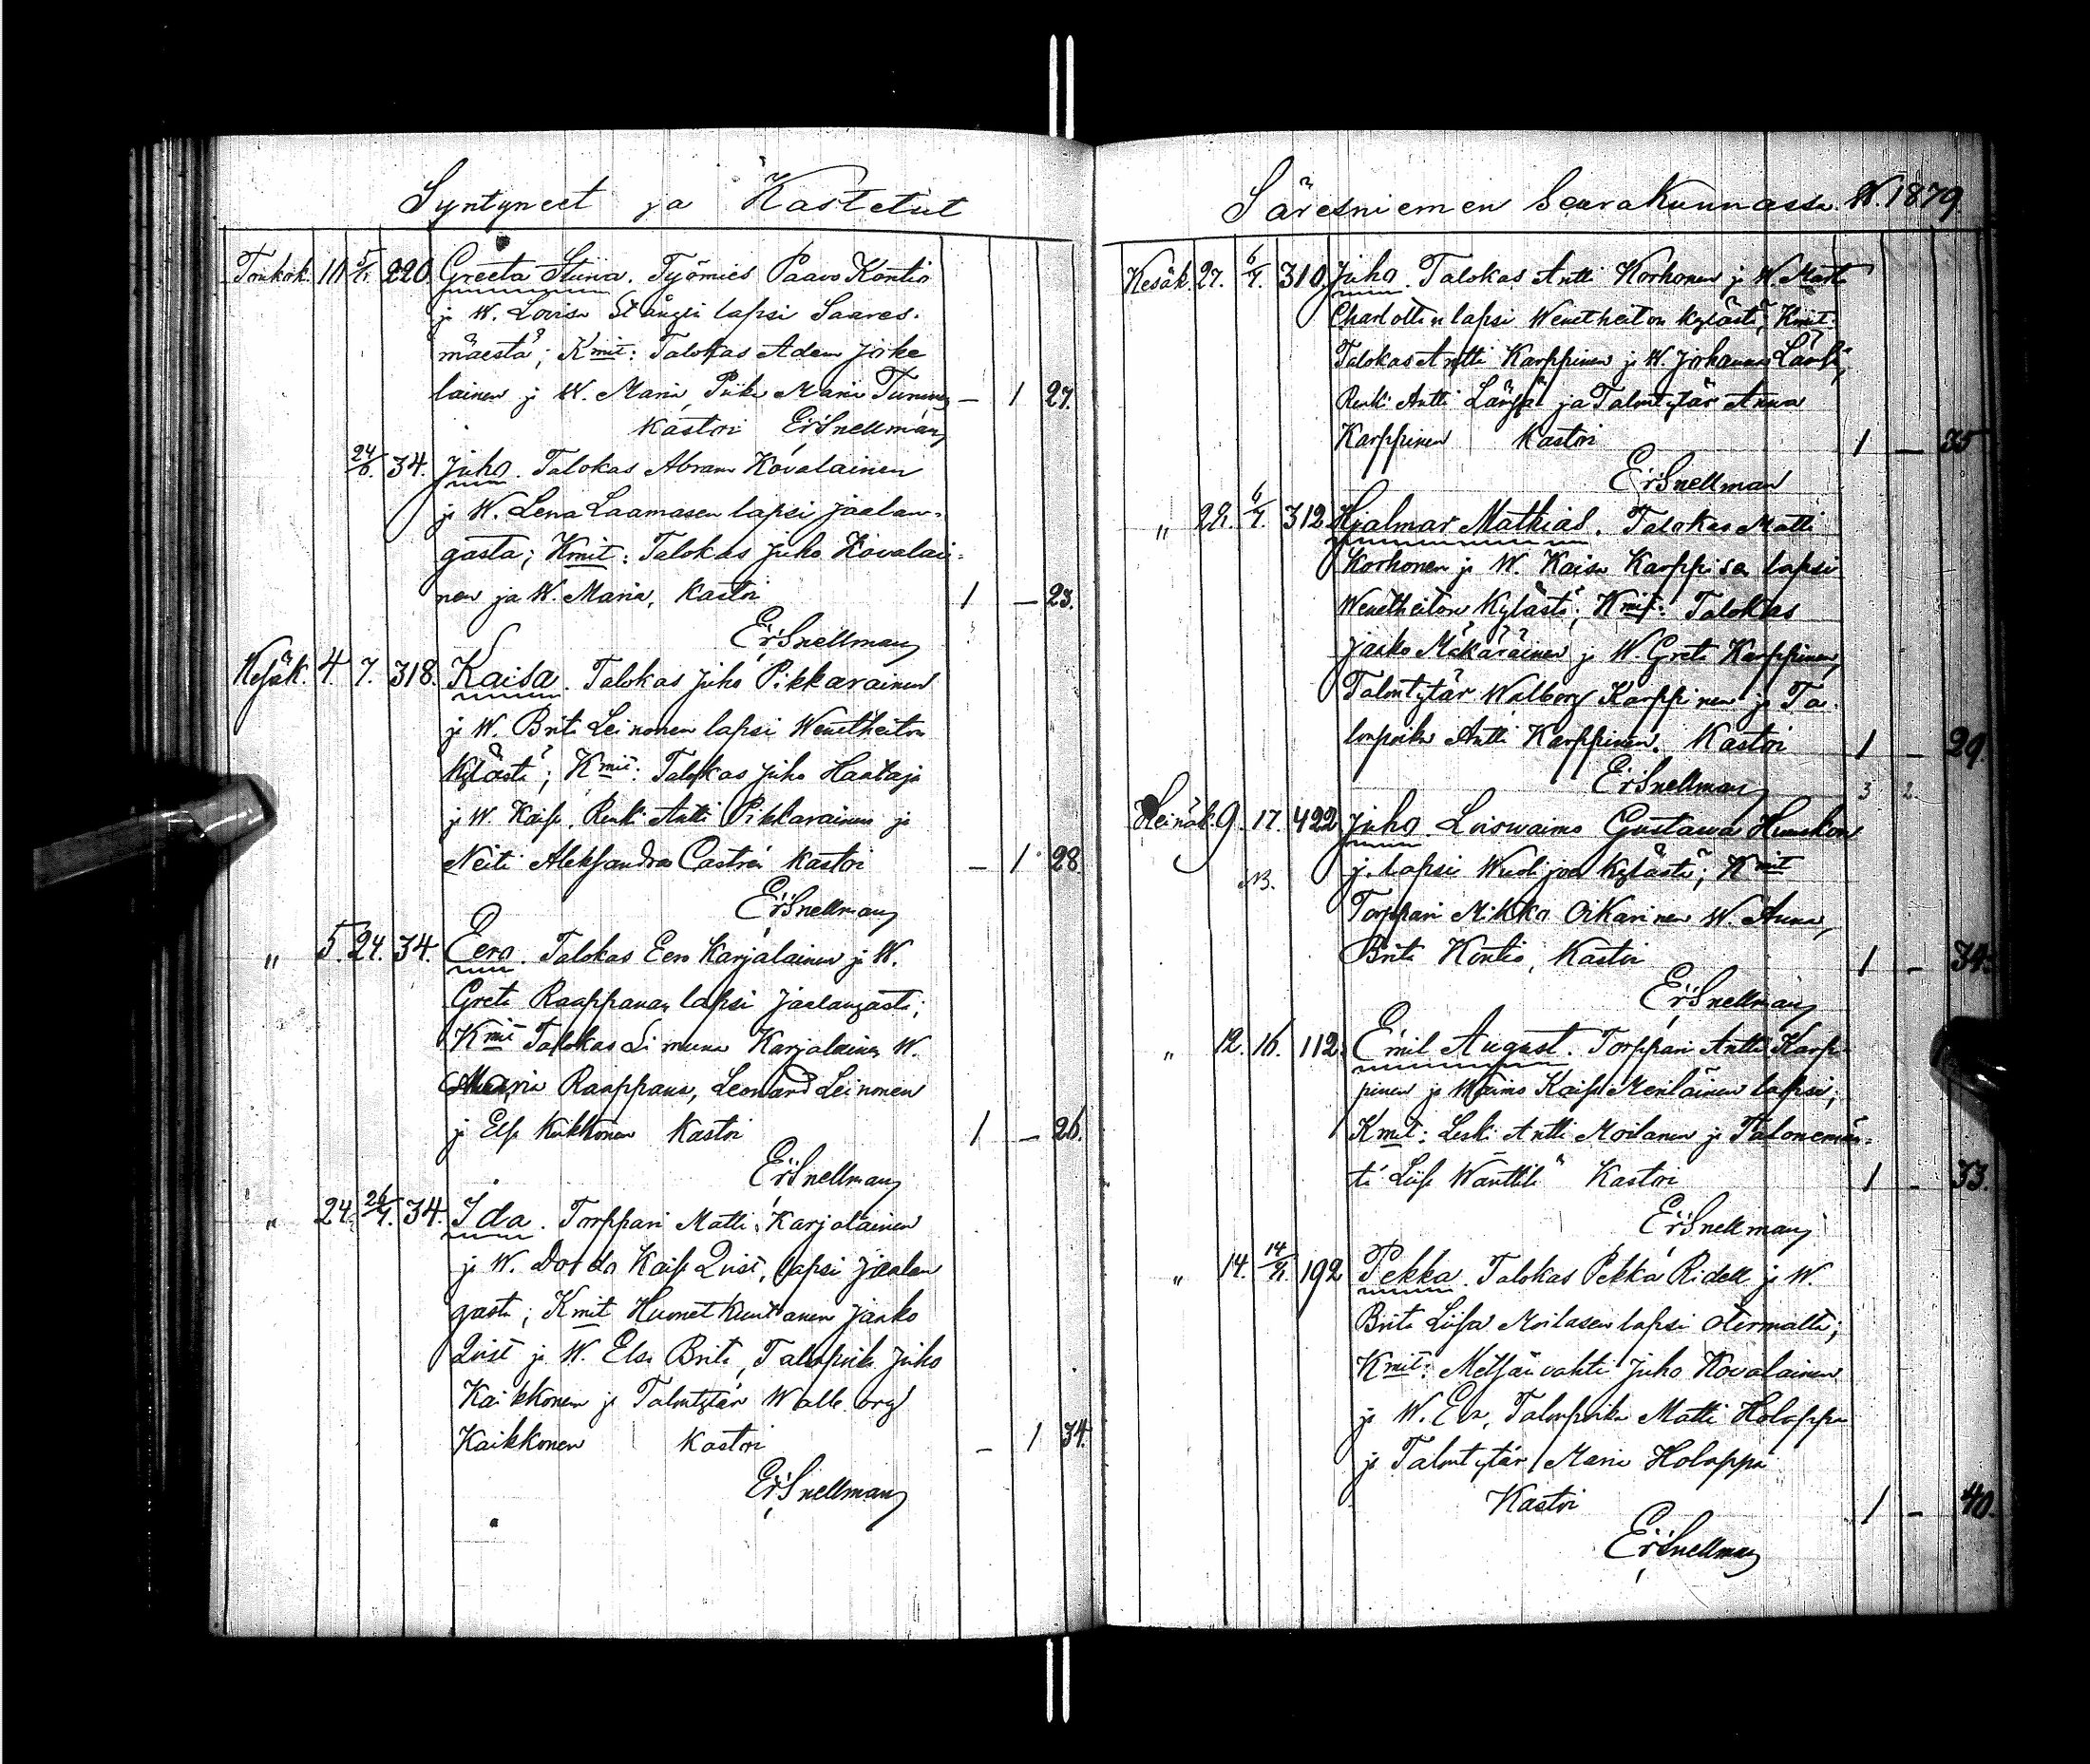 Syntyneet ja Kastetut
Toukok. 10 5/6 220 Greeta Stiina. Työmies Paavo Kontio
ja W. Lovisa Stångin lapsi Saares-
mäestä; Kmit: Talokas Adam Jirke
lainen ja W. Maria, Piika Maria Turunen — 1 27.
Kastoi Er. Snellman
24/6. 34. Juho. Talokas Abram Kovalainen
ja W. Lena Laamasen lapsi Jaalan-
gasta; Kmit: Talokas Juho Kovalai-
nen ja W. Maria, Kastoi 1 — 23.
Er. Snellman
Kesäk. 4. 7. 318. Kaisa. Talokas Juho Pikkarainen
ja W. Brita Leinonen lapsi Wenetheiton
kylästä; Kmit: Talokas Juho Haataja
ja W. Kaisa, Renki Antti Pikkarainen ja
Neiti Aleksandra Castrén kastoi — 1 28.
Er. Snellman
„ 5. 24. 34. Eero. Talokas Eero Karjalainen ja W.
Greta Raappanan lapsi Jaalangasta;
Kmit Talokas Simuna Karjalainen W.
Maria Raappana, Leonard Leinonen
ja Elsa Kukkonen Kastoi 1 — 26.
Er. Snellman
„ 24. 26/7. 34. Ida. Torppari Matti Karjalainen
ja W. Kaisa Qvist, lapsi Jaalan
gasta; Kmit Huonet Kuntanen Janko
Qvist ja W. Elsa Brita, Talonpoika Juho
Kaikkonen ja Talontytär Walborg
Kaikkonen Kastoi — 1 34.
Er. Snellman
Säresniemen Seurakunnassa W. 1879.
Kesäk. 27. 6/7. 310. Juho. Talokas Antti Korhonen ja W. Marta
Charlottan lapsi Wenetheiton kylästä, Kmit:
Talokas Antti Karppinen ja W. Johanna
Renki Antti ja Talontytär Anna
Karppinen Kastoi 1 — 35
Er. Snellman
„ 28. 6/7. 312 Hjalmar Mathias. Talokas Matti
Korhonen ja W. Kaisa Karppisen lapsi
Wenetheiton Kylästä; Kmit: Talokas
Jaako Mäkäräinen ja W. Greta Karppinen,
Talontytär Walborg Karppinen ja Ta-
lonpoika Antti Karppinen. Kastoi 1 — 29.
Er. Snellman 3 2.
Heinäk. 9. 17. 422 Juho. Loiswaimo Gustawa Huuskon
NB. j. lapsi Wuolijoen Kylästä; Kmit
Torppari Mikko Oikarinen W. Anna,
Brita Kontio, Kastoi 1 — 34.
Er. Snellman
„ 12. 16. 112. Emil August. Torppari Antti Karp-
pinen ja Waimo Kaisa Meriläinen lapsi;
Kmit: Leski Antti Moilanen ja Talonemän-
tä Liisa Wänttilä Kastoi 1 — 33.
Er. Snellman
„ 14. 14/ 192 Pekka. Talokas Pekka Ridell ja W.
Brita Liisa Moilasen lapsi Otermalta;
Kmit: Metsänvahti Juho Kovalainen
ja W. Eva, Talonpoika Matti Holappa
ja Talontytär Maria Holappa
Kastoi 1 — 40.
Er. Snellman